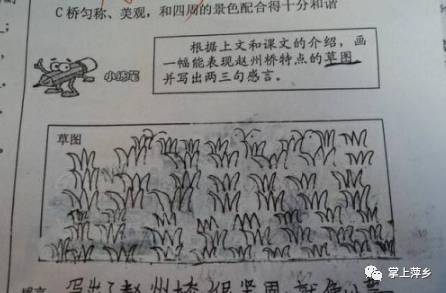 C 桥匀称、美观，和四周的景色配合得十分和谐
根据上文和课文的介绍，画
一幅能表现赵州桥特点的草图
并写出两三句感言。
小练笔
草图
写出了赵州桥很坚固
掌上萍乡